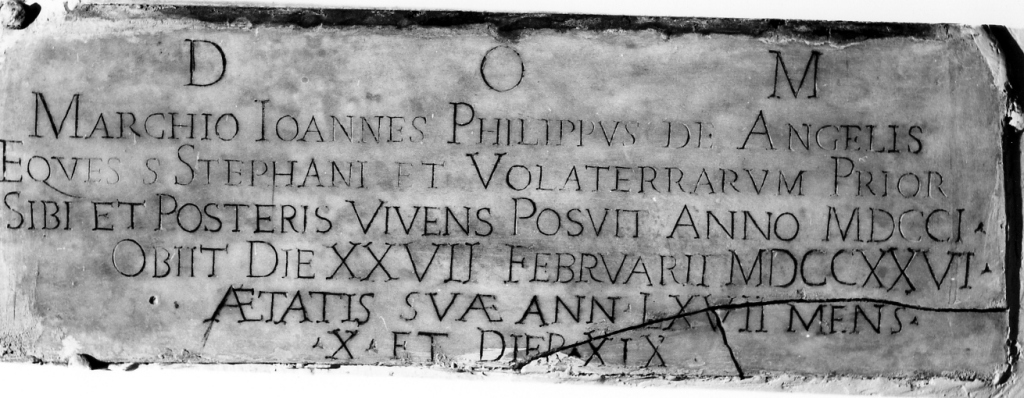 D O M
MARCHIO IOANNES PHILIPPVS DE ANGELIS
EQVES S STEPHANI ET VOLATERRARVM PRIOR
SIBI ET POSTERIS VIVENS POSVIT ANNO MDCCI
OBIIT DIE XXVII FEBRVARII MDCCXXVI
ÆTATIS SVÆ ANN LXVII MENS
X ET DIER XIX